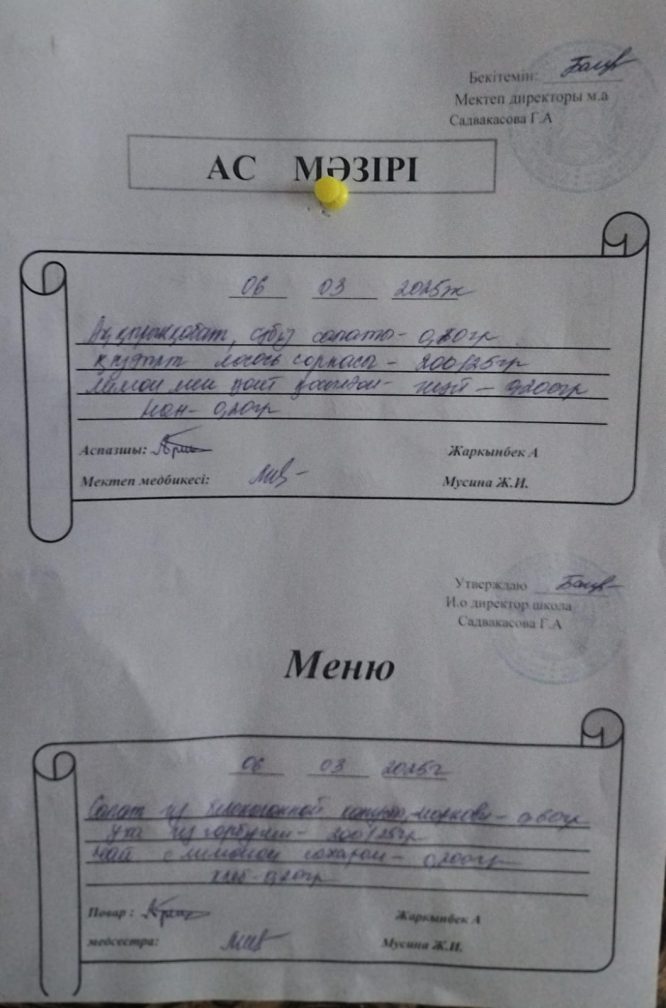 Бекітемін:
Мектеп директоры м.а
Садвакасова Г.А
АС МӘЗІРІ
06 03 2025ж
сәбіз салаты - 0,20гр
лосось сорпасы - 200/25гр
лимон мен қант қосылған шай - 0,200гр
Нан - 0,20гр
Аспазшы: Жаркынбек А
Мектеп медбикесі: Мусина Ж.И.
Утверждаю
И.о директор школа
Садвакасова Г.А
Меню
06 03 2025г
Салат из белокочанной капусты, моркови - 0,60гр
Уха из горбуши - 200/25гр
Чай с лимоном сахаром - 0,200гр
хлеб - 0,20гр
Повар : Жаркынбек А
медсестра: Мусина Ж.И.